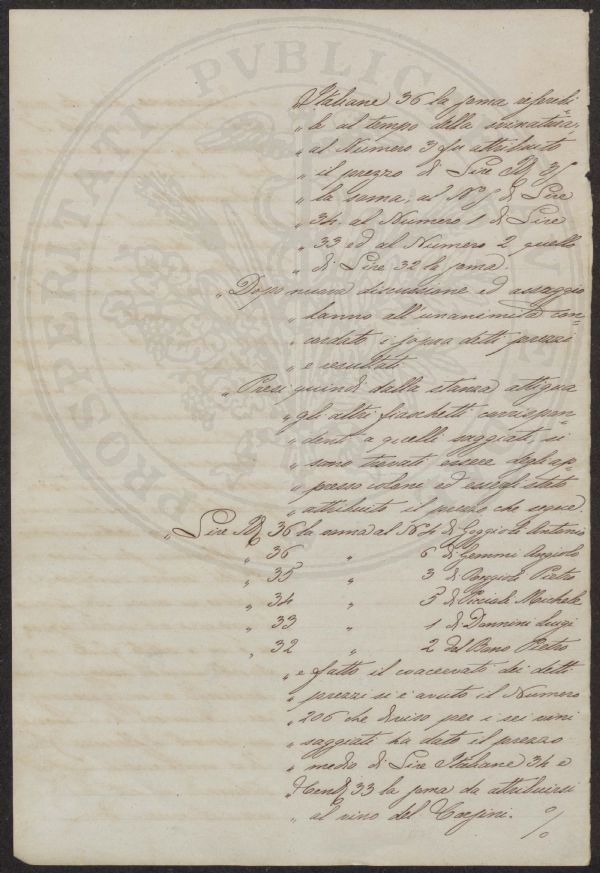 „ Italiane 36 la soma riferibi-
„ le al tempo della svinatura,
„ al Numero 3 fu attribuito
„ il prezzo di Lire 35
„ la soma, al N 5 di Lire
„ 34, al Numero 1 di Lire
„ 33 ed al Numero 2 quello
„ di Lire 32 la soma.
„ Dopo nuova discussione ed assaggio
„ hanno all'unanimità con-
„ cordato i sopra detti prezzi
„ e resultati
„ Presi quindi dalla stanza attigua
„ gli altri fiaschetti corrispon-
„ denti a quelli saggiati, si
„ sono trovati essere degli ap-
„ presso coloni ed essergli stato
„ attribuito il prezzo che segue.
„ Lire 36 la soma al N 4 di Goggioli Antonio
„ 36 „ 6 di Gemmi Angiolo
„ 35 „ 3 di Poggioli Pietro
„ 34 „ 5 di Michele
„ 33 „ 1 di Luigi
„ 32 „ 2 Del Bono Pietro
„ e fatto il coacervato dei detti
„ prezzi si è avuto il Numero
„ 206 che diviso per i sei vini
„ saggiati ha dato il prezzo
„ medio di Lire Italiane 34 e
„ Cent 33 la soma da attribuirsi
„ al vino del
PROSPERITATI PVBLICAE